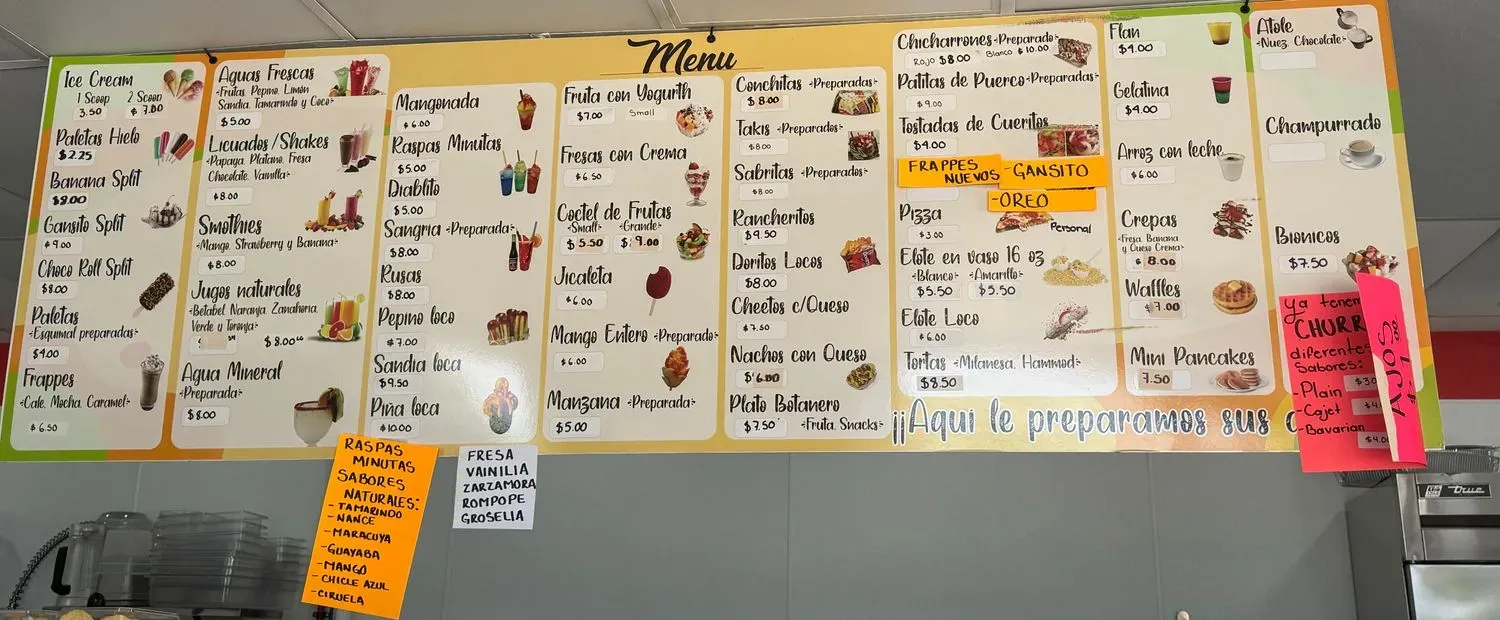 Menu
Ice Cream
1 Scoop 2 Scoop
3.50 $ 7.00
Paletas Hielo
$2.25
Banana Split
$9.00
Gansito Split
$9.00
Choco Roll Split
$8.00
Paletas
-Esquimal preparadas-
$9.00
Frappes
-Cafe, Mocha, Caramel-
$6.50
Aguas Frescas
-Frutas, Pepino, Limon
Sandia, Tamarindo y Coco-
$5.00
Licuados/Shakes
-Papaya, Platano, Fresa
Chocolate, Vainilla-
$8.00
Smothies
-Mango, Strawberry y Banana-
$8.00
Jugos naturales
-Betabel, Naranja, Zanahoria,
Verde y Toronja-
$8.00
Agua Mineral
-Preparada-
$8.00
Mangonada
$6.00
Raspas Minutas
$5.00
Diablito
$5.00
Sangria -Preparada-
$8.00
Rusas
$8.00
Pepino loco
$7.00
Sandia loca
$9.50
Piña loca
$10.00
Fruta con Yogurth
$7.00 Small
Fresas con Crema
$6.50
Coctel de Frutas
-Small- -Grande-
$5.50 $ 9.00
Jicaleta
$6.00
Mango Entero -Preparado-
$6.00
Manzana -Preparada-
$5.00
Conchitas -Preparadas-
$8.00
Takis -Preparados-
$8.00
Sabritas -Preparados-
$8.00
Rancheritos
$9.50
Doritos Locos
$8.00
Cheetos c/Queso
$7.50
Nachos con Queso
$6.00
Plato Botanero
$7.50 -Fruta, Snacks-
Chicharrones -Preparado-
Rojo $8.00 Blanco $10.00
Patitas de Puerco -Preparadas-
$9.00
Tostadas de Cueritos
$9.00
FRAPPES
NUEVOS
-GANSITO
-OREO
Pizza
$3.00 Personal
Elote en vaso 16 oz
-Blanco- -Amarillo-
$5.50 $5.50
Elote Loco
$6.00
Tortas -Milanesa, Hammod-
$8.50
Flan
$4.00
Gelatina
$4.00
Arroz con leche
$6.00
Crepas
-Fresa, Banana
y Queso Crema-
$8.00
Waffles
$7.00
Mini Pancakes
7.50
Atole
-Nuez, Chocolate-
Champurrado
Bionicos
$7.50
¡¡Aqui le preparamos sus
ya tenem
CHURR
diferentes
Sabores:
-Plain
-Cajet
-Bavarian
$4.00
RASPAS
MINUTAS
SABORES
NATURALES:
-TAMARINDO
-NANCE
-MARACUYA
-GUAYABA
-MANGO
-CHICLE AZUL
-CIRUELA
FRESA
VAINILIA
ZARZAMORA
ROMPOPE
GROSELIA
True